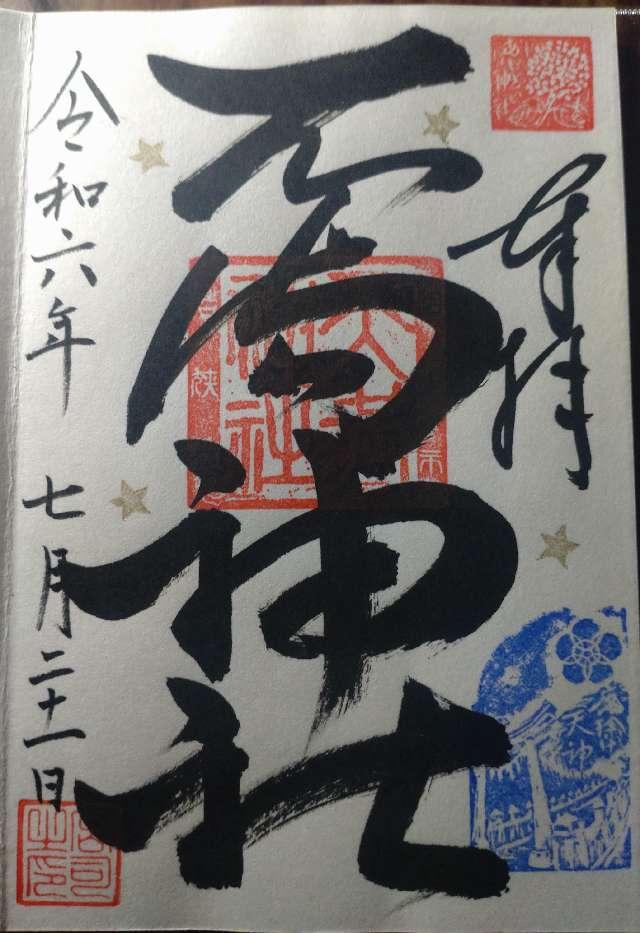 奉拝
天満神社
令和六年 七月二十一日
天神